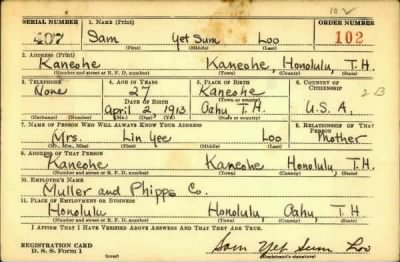 102
SERIAL NUMBER 1. NAME (Print) ORDER NUMBER
407 Sam Yet Sum Loo 102
(First) (Middle) (Last)
2. ADDRESS (Print)
Kaneohe Kaneohe, Honolulu, T.H.
(Number and street or R. F. D. number) (Town) (County) (State)
3. TELEPHONE 4. AGE IN YEARS 5. PLACE OF BIRTH 6. COUNTRY OF CITIZENSHIP
None 27 Kaneohe
DATE OF BIRTH (Town or county)
April 2 1913 Oahu T.H. U.S.A. 2B
(Exchange) (Number) (Mo.) (Day) (Yr.) (State or country)
7. NAME OF PERSON WHO WILL ALWAYS KNOW YOUR ADDRESS 8. RELATIONSHIP OF THAT PERSON
Mrs. Lin Yee Loo Mother
(Mr., Mrs., Miss) (First) (Middle) (Last)
9. ADDRESS OF THAT PERSON
Kaneohe Kaneohe, Honolulu, T.H.
(Number and street or R. F. D. number) (Town) (County) (State)
10. EMPLOYER'S NAME
Muller and Phipps Co.
11. PLACE OF EMPLOYMENT OR BUSINESS
Honolulu Honolulu, Oahu, T.H.
(Number and street or R. F. D. number) (Town) (County) (State)
I AFFIRM THAT I HAVE VERIFIED ABOVE ANSWERS AND THAT THEY ARE TRUE.
REGISTRATION CARD
D. S. S. Form 1 Sam Yet Sum Loo
(Registrant's signature)